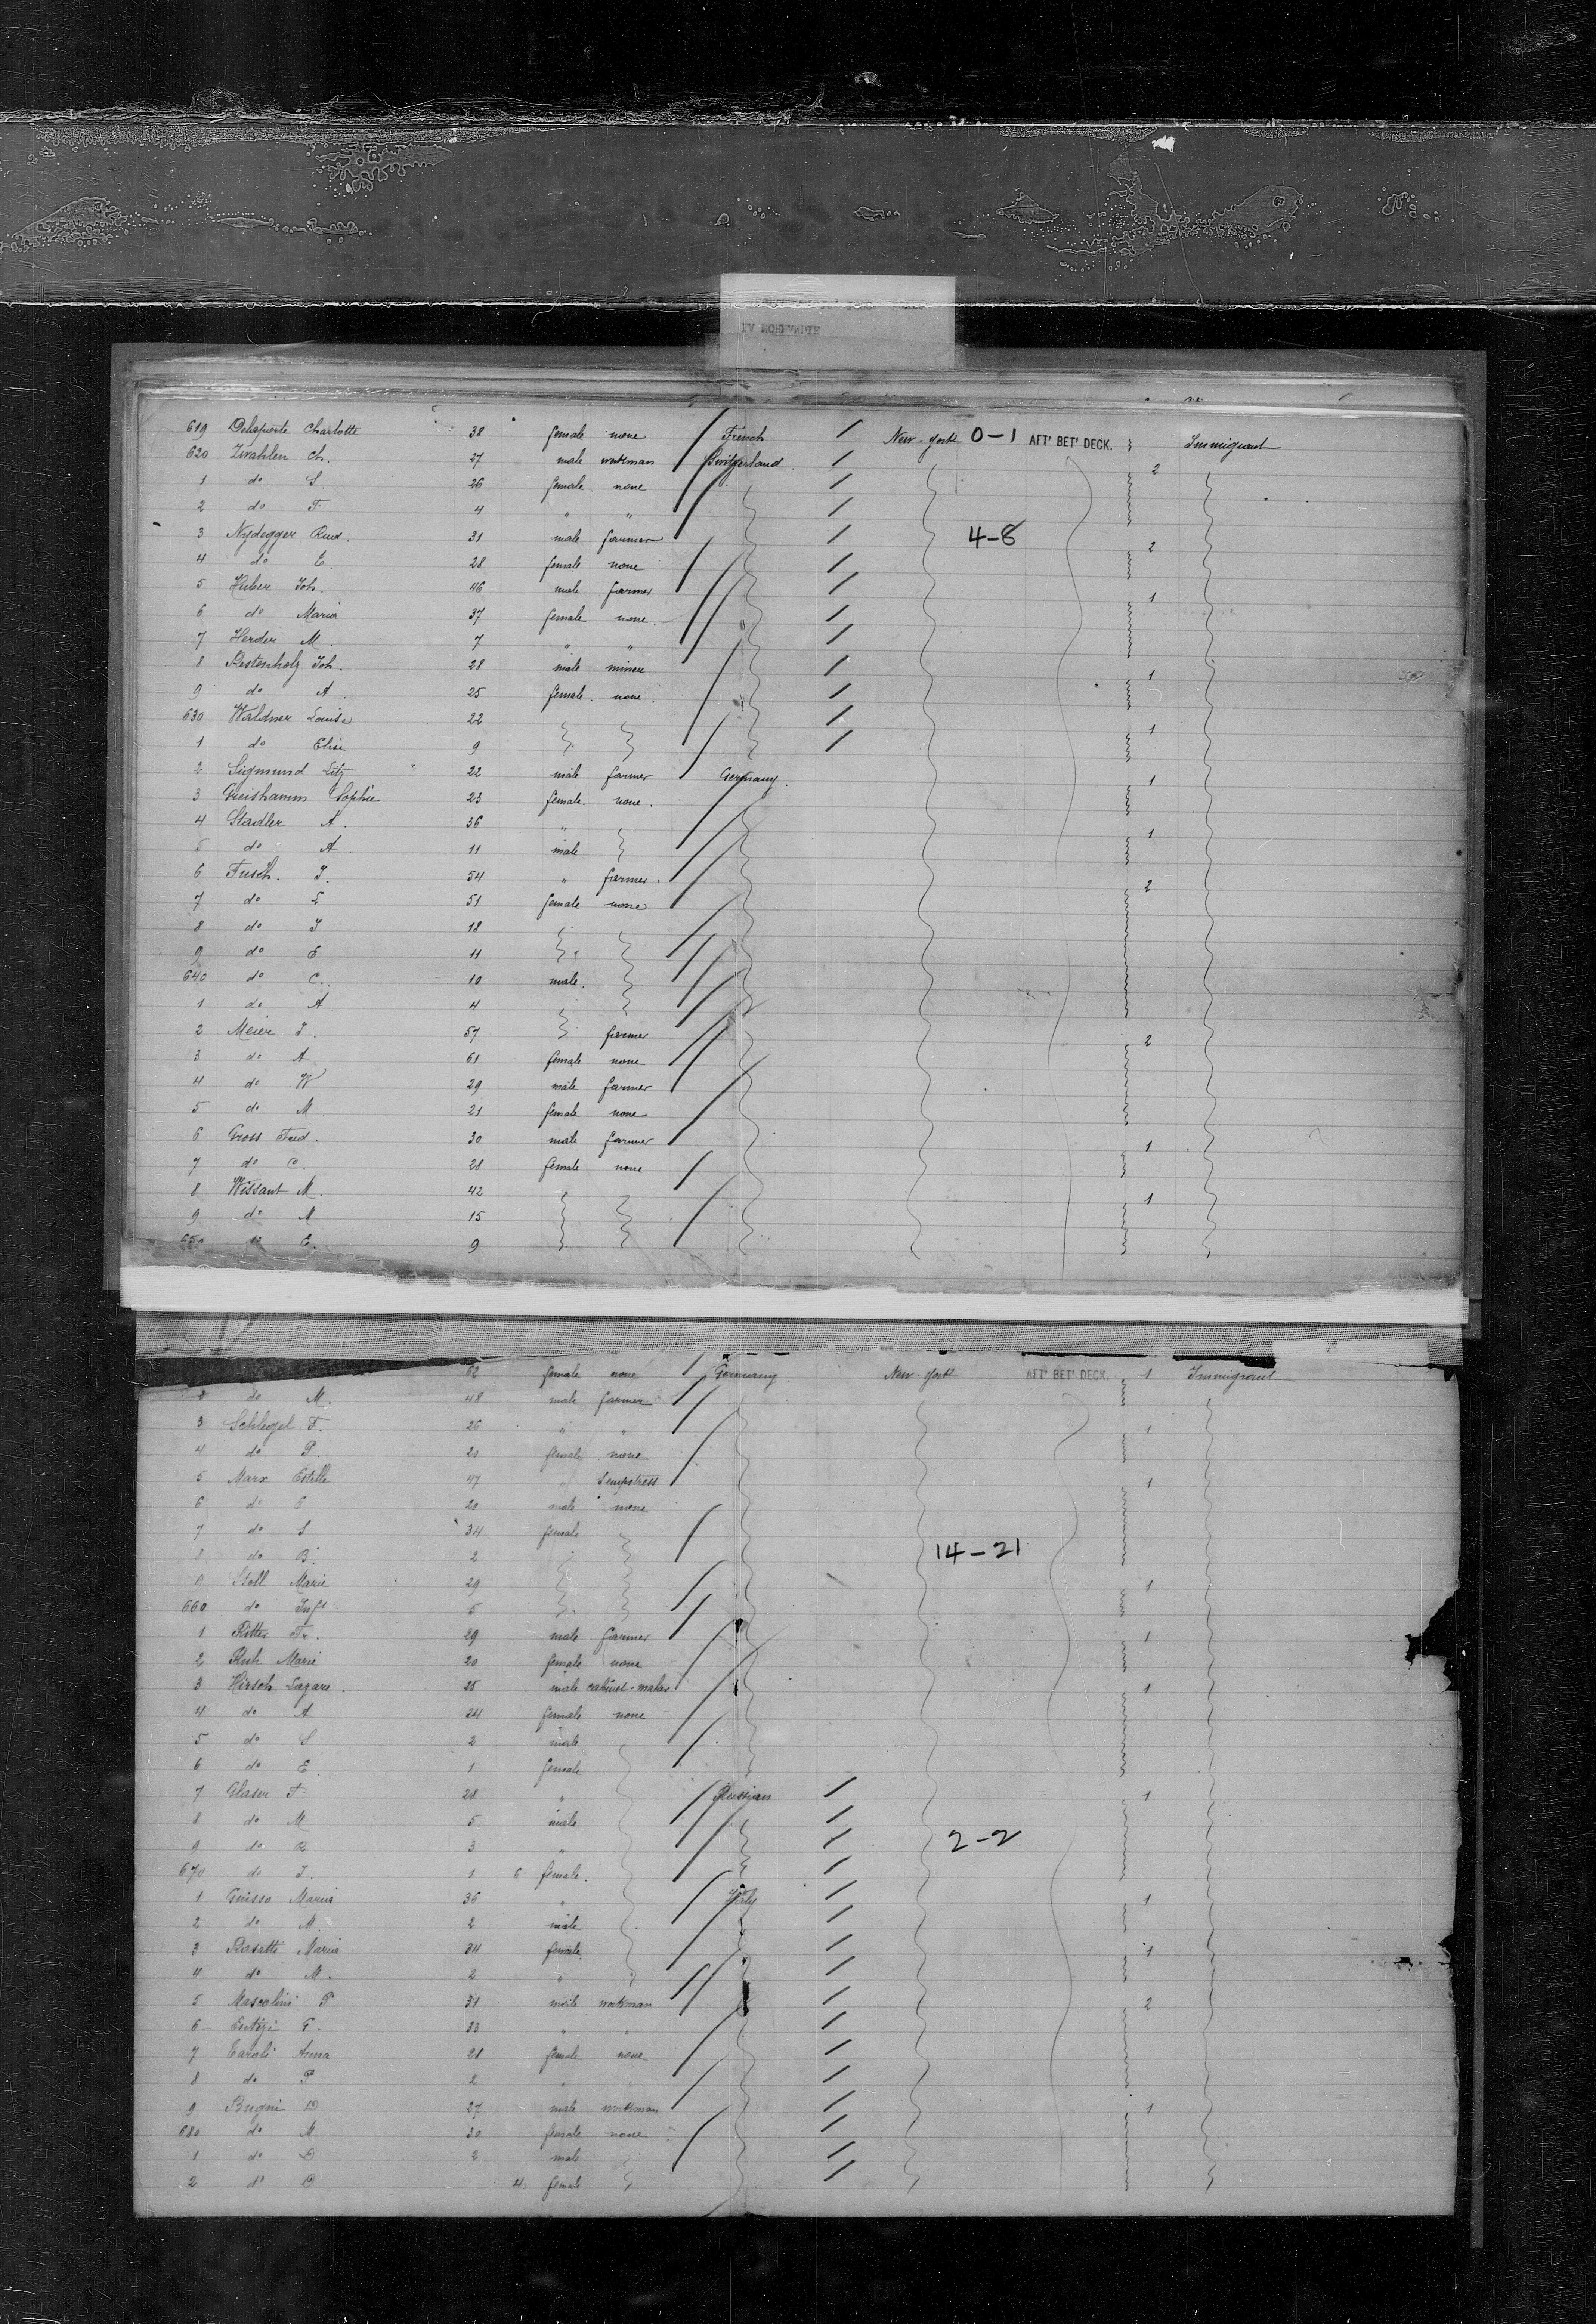 619 Delaporte Charlotte 38 female none French New-York 0-1 AFT' BET' DECK. Immigrant
620 Zwahlen Ch. 27 male workman Switzerland 2
1 do S. 26 female none
2 do F. 4 " "
3 Nydegger Rud. 31 male farmer 4-8 2
4 do E. 28 female none
5 Huber Joh. 46 male farmer 1
6 do Maria 37 female none.
7 Herder M. 7 " "
8 Restenholz Joh. 28 male miner 1
9 do A. 25 female none
630 Waldner Louise 22 1
1 do Elise 9
2 Sigmund Litz 22 male farmer Germany. 1
3 Greishamm Sophie 23 female none.
4 Stadler A. 36 " 1
5 do A 11 male
6 Fusch. J. 54 " farmer. 2
7 do L 51 female none
8 do J 18
9 do E 11
640 do C. 10 male.
1 do A 4
2 Meier J. 57 farmer 2
3 do A 61 female none
4 do W 29 male farmer
5 do M 21 female none
6 Gross Fred. 30 male farmer 1
7 do C. 28 female none
8 Wissant M. 42 1
9 do A 15
650 E. 9
62 female none Germany New-York AFT' BET' DECK. 1 Immigrant
2 do M. 48 male farmer
3 Schlegel F. 26 " " 1
4 do P. 20 female none
5 Marx Estelle 47 " Sempstress 1
6 do 20 male none
7 do S 34 female
do B. 2 14-21
9 Stoll Marie 29 1
660 do Inft 5
1 Ritter Fr. 29 male farmer 1
2 Ruh Marie 20 female none
3 Hirsch Lazare. 25 male cabinet-maker 1
4 do A 24 female none
5 do S 2 male
6 do E. 1 female
7 Glaser F. 28 " Russian 1
8 do M 5 male
9 do R 3 " 2-2
670 do J. 1 6 female.
1 Guisso Maria 36 " Italy 1
2 do M. 2 male
3 Rosatti Maria 34 female. 1
4 do M. 2 " "
5 Mascalini P 31 male workman 2
6 G. 33 " "
7 Caroli Anna 28 female none
8 do P 2 " "
9 Bugni D 27 male workman 1
680 do M 30 female none
1 do D 2 male
2 do D 4 female